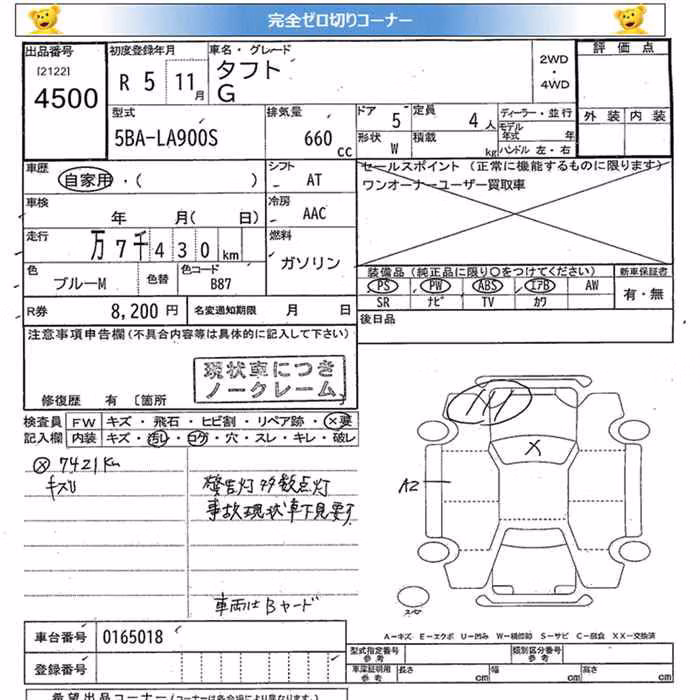 完全ゼロ切りコーナー
出品番号 [2122] 4500
初度登録年月 R 5 11月
車名・グレード タフト G
2WD ・ 4WD
評価点
外装 内装
型式 5BA-LA900S
排気量 660 cc
ドア 5 定員 4人
形状 W 積載 kg
ディーラー・並行
モデル年式 年
ハンドル 左・右
車歴 自家用・( )
シフト AT
セールスポイント(正常に機能するものに限ります)
ワンオーナーユーザー買取車
車検 年 月( 日)
冷房 AAC
走行 万7千430km
燃料 ガソリン
色 ブルーM 色替 色コード B87
装備品(純正品に限り○をつけてください)
PS PW ABS エアB AW
SR ナビ TV カワ
新車保証書 有・無
R券 8,200円 名変通知期限 月 日
後日品
注意事項申告欄(不具合内容等は具体的に記入して下さい)
現状車につき
ノークレーム
修復歴 有 〔箇所 〕
検査員記入欄
FW キズ・飛石・ヒビ割・リペア跡・×要
内装 キズ・汚レ・コゲ・穴・スレ・キレ・破レ
7421Km
キズU
警告灯多数点灯
事故現状車下見要す
車両はBヤード
A2
X
スペア
A-キズ E-エクボ U-凹み W-補修跡 S-サビ C-腐食 XX-交換済
車台番号 0165018
登録番号
型式指定番号 参考
類別区分番号 参考
車庫証明用 参考 長さ cm 幅 cm 高さ cm
希望出品コーナー(コーナーは各会場により異なります。)